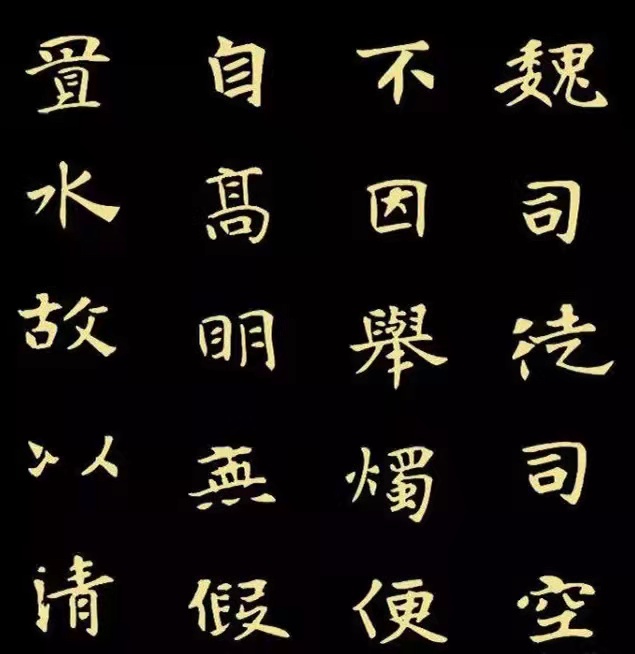 魏司徒司空
不因舉燭便
自髙眀無假
置水故以清